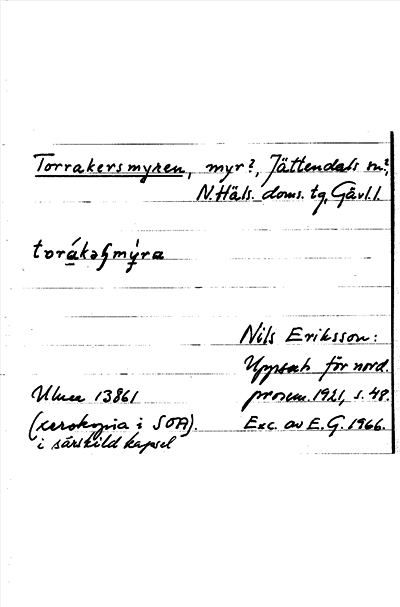 Torrakersmyren, myr?, Jättendals sn?,
N. Häls. doms. tg, Gävl.l.
torákəʂmýra
Nils Eriksson:
Uppsats för nord.
Ulma 13861
prosem. 1921, s. 48.
(xerokopia i SOA).
Exc. av E. G. 1966.
i särskild kapsel